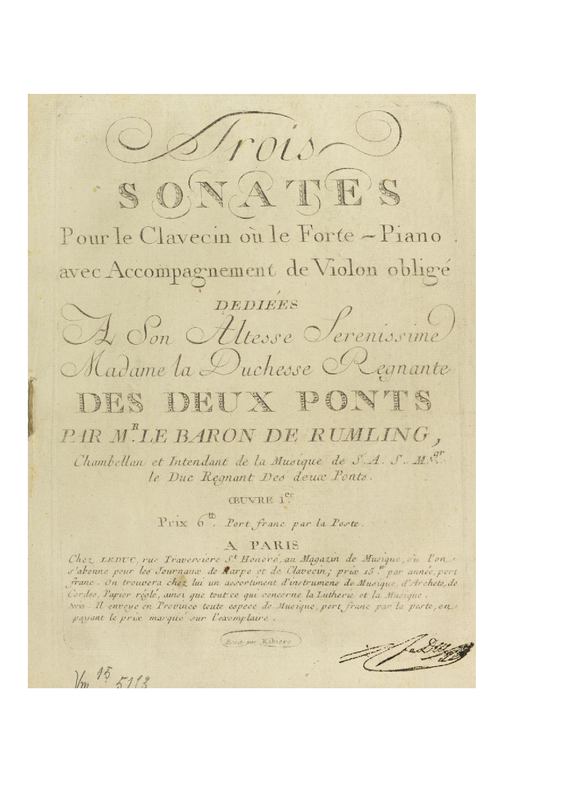 Trois
SONATES
Pour le Clavecin où le Forte - Piano.
avec Accompagnement de Violon obligé
DEDIÉES
A Son Altesse Serenissime
Madame la Duchesse Regnante
DES DEUX PONTS
PAR M.R LE BARON DE RUMLING,
Chambellan et Intendant de la Musique de S. A. S. M.gr
le Duc Regnant Des deux Ponts.
ŒUVRE 1.er
Prix 6.tt Port franc par la Poste.
A PARIS
Chez LEDUC, rue Traversiere S.t Honoré, au Magazin de Musique, où l'on
s'abonne pour les Journaux de Harpe et de Clavecin; prix 15.tt par année, port
franc. On trouvera chez lui un assortiment d'instrumens de Musique, d'Archets, de
Cordes, Papier réglé, ainsi que tout ce qui concerne la Lutherie et la Musique.
Il envoye en Province toute espece de Musique, port franc par la poste, en
payant le prix marqué sur l'exemplaire.
Gravé par Ribiere
Vm 15 5113